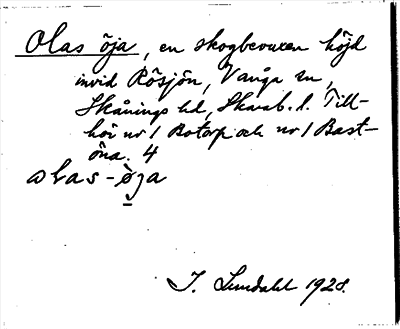 Olas öja, en skogbevuxen höjd
invid Rösjön, Vånga sn,
Skånings hd, Skarab. l. Till-
hör nr 1 Botorp och nr 1 Bast-
öna. 4
ωlas-ö̀ja
J. Lundahl 1928.